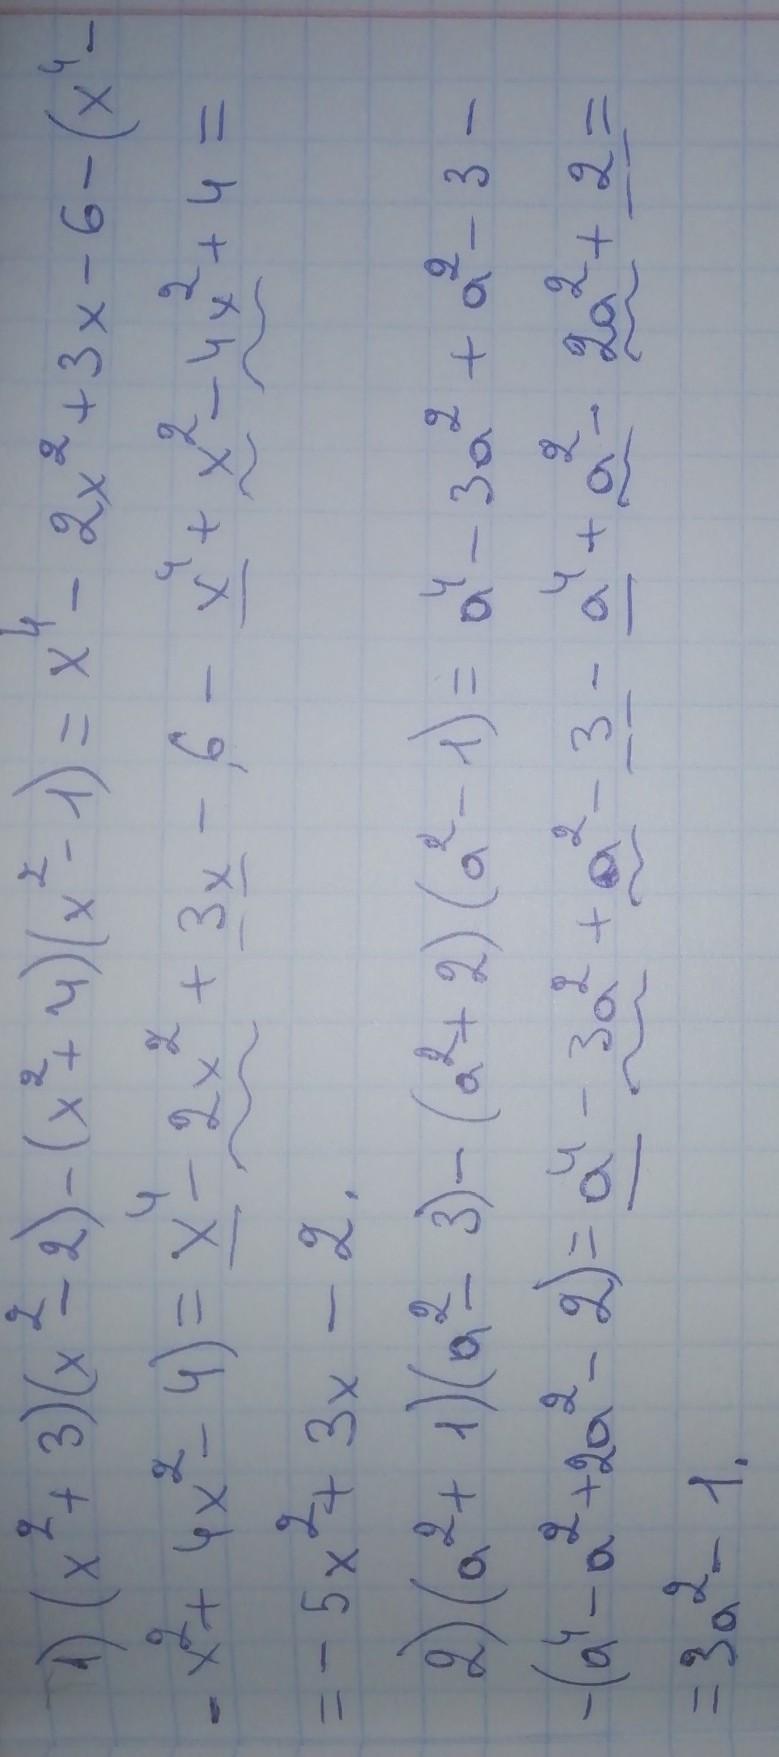 1) (x² + 3)(x² - 2) - (x² + 4)(x² - 1) = x⁴ - 2x² + 3x - 6 - (x⁴ -
- x² + 4x² - 4) = x⁴ - 2x² + 3x - 6 - x⁴ + x² - 4x² + 4 =
= - 5x² + 3x - 2.
2) (a² + 1)(a² - 3) - (a² + 2)(a² - 1) = a⁴ - 3a² + a² - 3 -
- (a⁴ - a² + 2a² - 2) = a⁴ - 3a² + a² - 3 - a⁴ + a² - 2a² + 2 =
= 3a² - 1.